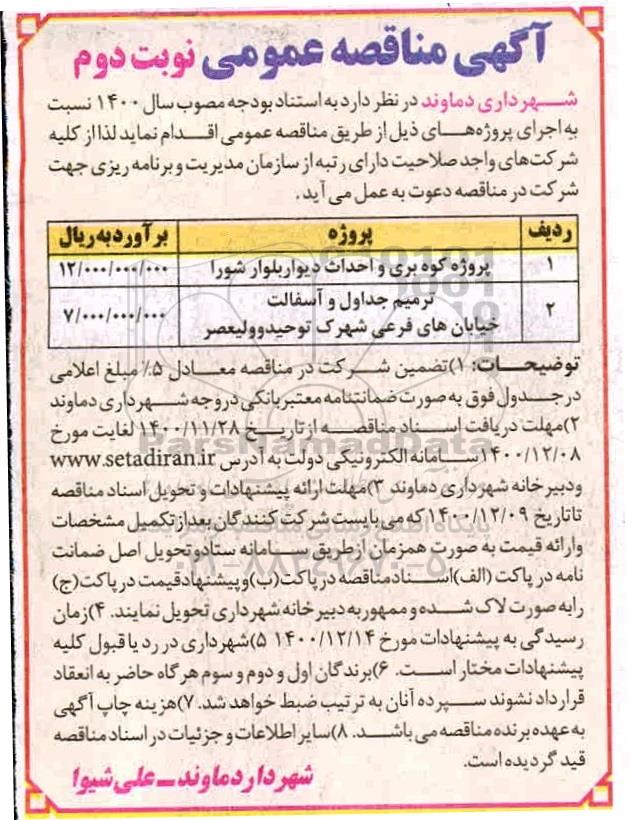 آگهی مناقصه عمومی نوبت دوم
شهرداری دماوند در نظر دارد به استناد بودجه مصوب سال ۱۴۰۰ نسبت
به اجرای پروژه‌های ذیل از طریق مناقصه عمومی اقدام نماید لذا از کلیه
شرکت‌های واجد صلاحیت دارای رتبه از سازمان مدیریت و برنامه ریزی جهت
شرکت در مناقصه دعوت به عمل می آید.
ردیف پروژه برآورد به ریال
۱ پروژه کوه بری و احداث دیوار بلوار شورا ۱۲/۰۰۰/۰۰۰/۰۰۰
۲ ترمیم جداول و آسفالت
خیابان های فرعی شهرک توحید و ولیعصر ۷/۰۰۰/۰۰۰/۰۰۰
توضیحات: ۱)تضمین شرکت در مناقصه معادل ۵٪ مبلغ اعلامی
در جدول فوق به صورت ضمانتنامه معتبر بانکی در وجه شهرداری دماوند
۲)مهلت دریافت اسناد مناقصه از تاریخ ۱۴۰۰/۱۱/۲۸ لغایت مورخ
۱۴۰۰/۱۲/۰۸ سامانه الکترونیکی دولت به آدرس www.setadiran.ir
ودبیرخانه شهرداری دماوند ۳)مهلت ارائه پیشنهادات و تحویل اسناد مناقصه
تا تاریخ ۱۴۰۰/۱۲/۰۹ که می بایست شرکت کنندگان بعد از تکمیل مشخصات
وارائه قیمت به صورت همزمان از طریق سامانه ستاد و تحویل اصل ضمانت
نامه در پاکت (الف) اسناد مناقصه در پاکت (ب) و پیشنهاد قیمت در پاکت (ج)
را به صورت لاک شده و ممهور به دبیرخانه شهرداری تحویل نمایند. ۴)زمان
رسیدگی به پیشنهادات مورخ ۱۴۰۰/۱۲/۱۴ ۵)شهرداری در رد یا قبول کلیه
پیشنهادات مختار است. ۶)برندگان اول و دوم و سوم هرگاه حاضر به انعقاد
قرارداد نشوند سپرده آنان به ترتیب ضبط خواهد شد. ۷)هزینه چاپ آگهی
به عهده برنده مناقصه می باشد. ۸)سایر اطلاعات و جزئیات در اسناد مناقصه
قید گردیده است.
شهردار دماوند ـ علی شیوا
ParsNamadData